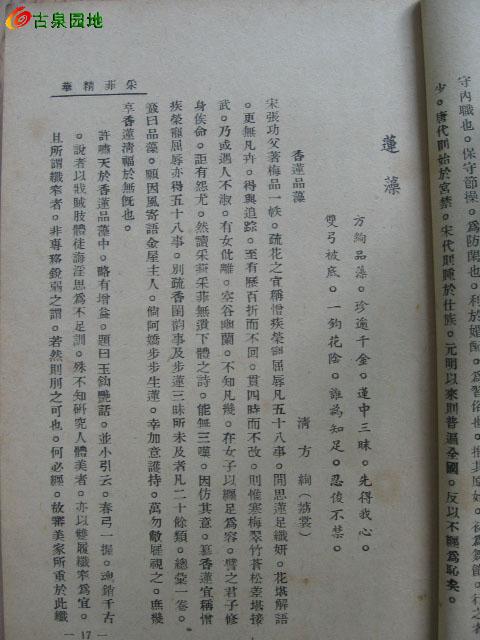 古泉园地
守內職也。保守節操。爲防閑也。利於婚
少。唐代則始於宮禁。宋代則踵於仕族。元明以來則普遍全國。反以不纏爲恥矣。
蓮藻
方絢品藻。珍逾千金。蓮中三昧。先得我心。
雙弓被底。一鈎花陰。誰爲知足。忍俊不禁。
香蓮品藻
清方絢(荔裳)
宋張功父著梅品一帙。疏花之宜稱憎疾榮寵屈辱凡五十八事。閒思蓮足纖妍。花堪解語
。更無凡卉。得與追踪。至有歷百折而不回。貫四時而不改。則惟寒梅翠竹蒼松差堪接
武。乃或遇人不淑。有女仳離。空谷幽蘭。不知凡幾。在女子以纏足爲容。譬之君子修
身俟命。詎有怨尤。然讀采葑采菲無遺下體之詩。能無三嘆。因仿其意。纂香蓮宜稱憎
疾榮寵屈辱亦得五十八事。別疏香閨韵事及步蓮三昧所未及者凡二十餘類。總彙一卷。
簽曰品藻。願因風寄語金屋主人。倘阿嬌步步生蓮。幸加意護持。萬勿敝屣視之。庶幾
享香蓮清福於無旣也。
許嘯天於香蓮品藻中。略有增益。題曰玉鈎艷話。並小引云。春弓一握。魂銷千古
。說者以戕賊肢體徒誨淫思爲不足訓。殊不知研究人體美者。亦以雙履纖窄爲宜。
且所謂纖窄者。非專務銳弱之謂。若然則刖之可也。何必纏。故審美家所重於此纖
采菲精華
— 17 —